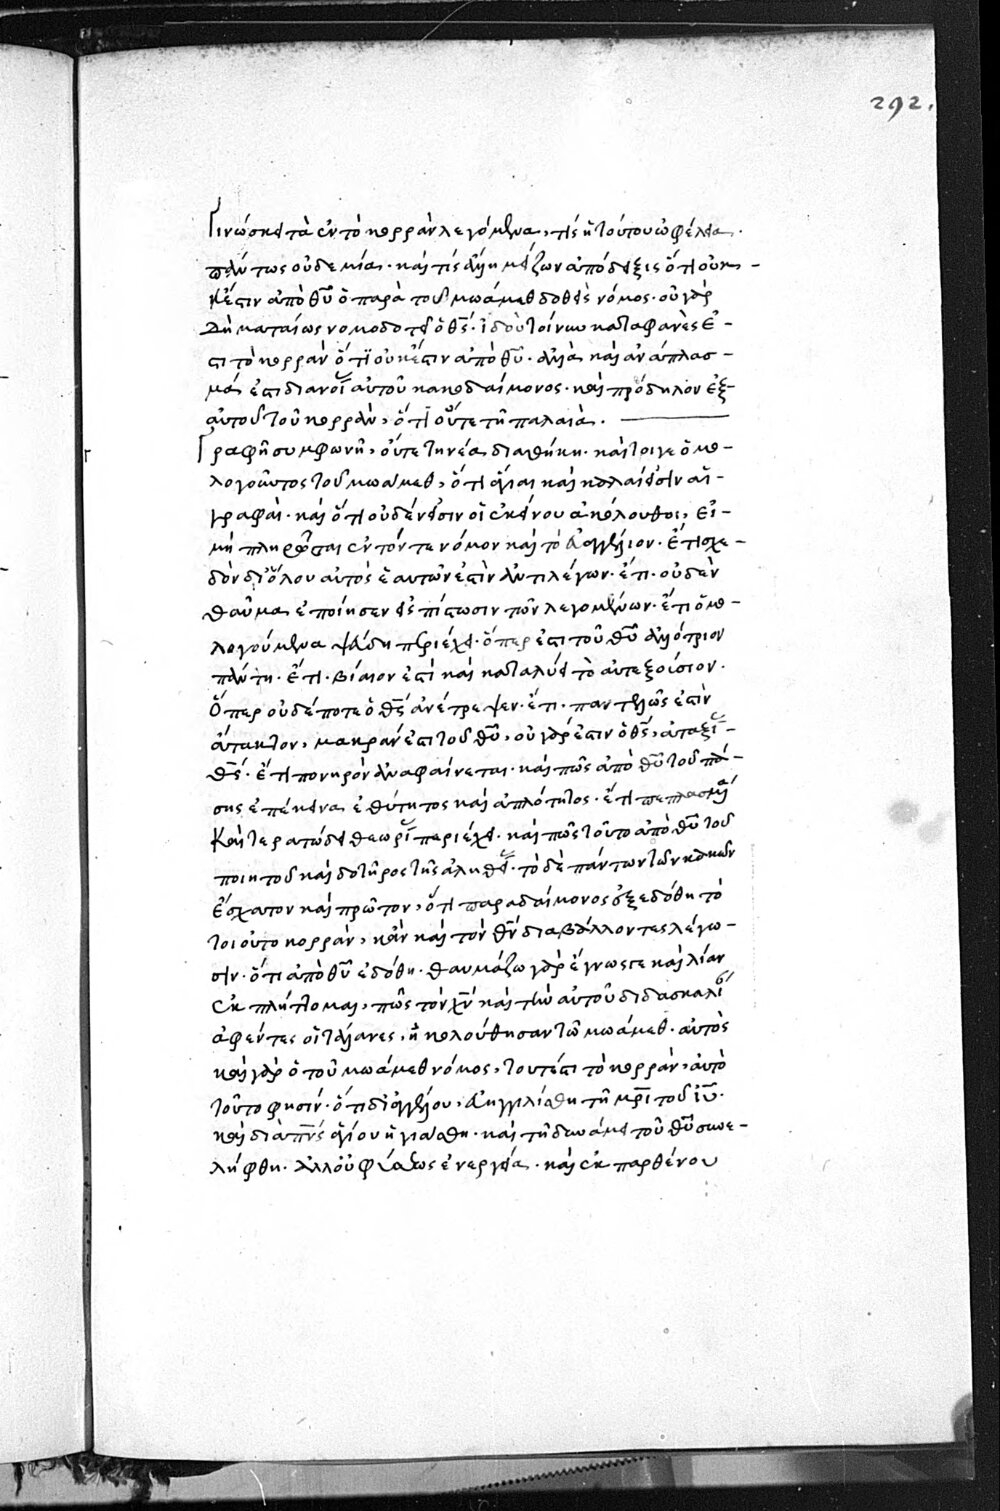 292.
Γινώσκει τὰ ἐν τὸ κορρὰν λεγόμενα, τίς ἡ τούτου ὠφέλεια.
πάντως οὐδεμία. καὶ τίς ἂν ἦ μείζων ἀπόδειξις ὅτι οὐκ -
κἔστιν ἀπὸ θῦ ὁ παρὰ τοῦ μωάμεθ δοθεὶς νόμος. οὐ γὰρ
δὴ ματαίως νομοδοτεῖ ὁ θς. ἰδοὺ τοίνυν καταφανὲς ἐ -
στι τὸ κορρὰν ὅτι οὐκ ἔστιν ἀπὸ θῦ. ἀλλὰ καὶ ἀνάπλασ -
μά ἐστι διανοί αὐτοῦ κακοδαίμονος. καὶ πρόδηλον ἐξ -
αὐτοῦ τοῦ κορρὰν, ὅτι οὔτε τῇ παλαιὰ.
Γραφῆ συμφωνῆ, οὔτε τη νέα διαθήκη. καίτοιγε ὁμο -
λογοῦντος τοῦ μωάμεθ, ὅτι ἅγιαι καὶ καλαί εἰσιν αἱ -
γραφαὶ. καὶ ὅτι οὐδέν εἰσιν οἱ ἐκείνου ἀκόλουθοι, εἰ -
μὴ πληρῶσαι ἐν τόν τε νόμον καὶ τὸ εὐαγγέλιον. ἔτι σχε -
δὸν δι' ὅλου αὐτὸς ἑαυτῶν ἐστὶν ἀντιλέγων. ἔτι. οὐδὲν
θαῦμα ἐποίησεν εἰς πίστωσιν τῶν λεγομένων. ἔτι ὁμο -
λογούμενα ψεύδη περιέχει. ὅπερ ἐστι τοῦ θῦ ἀλλότριον
πάντη. ἔτι. βίαιον ἐστί καὶ καταλύει τὸ αὐτεξούσιον.
Ὅπερ οὐδέποτε ὁ θς ἀνέτρεψεν. ἔτι. παντελῶς ἐστὶν
ἄτακτον, μακρὰν ἐστι τοῦ θῦ, οὐ γὰρ ἐστιν ὁ θς, ἀταξί -
θς. ἔτι πονηρὸν ἀναφαίνεται. καὶ πῶς ἀπὸ θῦ τοῦ πά -
σης ἐπέκεινα εὐθύτητος καὶ ἁπλότητος. ἔτι πεπλασμέ
καὶ τερατώδη θεωρί περιέχει. καὶ πῶς τοῦτο ἀπὸ θῦ τοῦ
ποιητοῦ καὶ δοτῆρος τῆς ἀληθεί. τὸ δὲ πάντων τῶν κακῶν
ἔσχατον καὶ πρῶτον, ὅτι παρὰ δαίμονος ἐξεδόθη τὸ
τοιοῦτο κορρὰν, κἂν καὶ τὸν θν διαβάλλοντες λέγω -
σιν. ὅτι ἀπὸ θῦ ἐδόθη. θαυμάζω γὰρ ἔγνωστε καὶ λίαν
ἐκπλήττομαι, πῶς τὸν χν καὶ τὴν αὐτοῦ διδασκαλί
ἀφέντες οἱ τάλανες, ἠκολούθησαν τῶ μωάμεθ. αὐτὸς
καὶ γὰρ ὁ τοῦ μωάμεθ νόμος, τουτέστι τὸ κορρὰν, αὐτὸ
τοῦτο φησίν. ὅτι δι' ἀγγέλου, ἀνηγγελίσθη τῆ μρι τοῦ ἰῦ.
καὶ διὰ πνς ἁγίου ἡγιάσθη. καὶ τῆ δυνάμει τοῦ θῦ συνε -
λήφθη. ἀλλ' οὐ φύσεως ἐνεργεία. καὶ ἐκ παρθένου